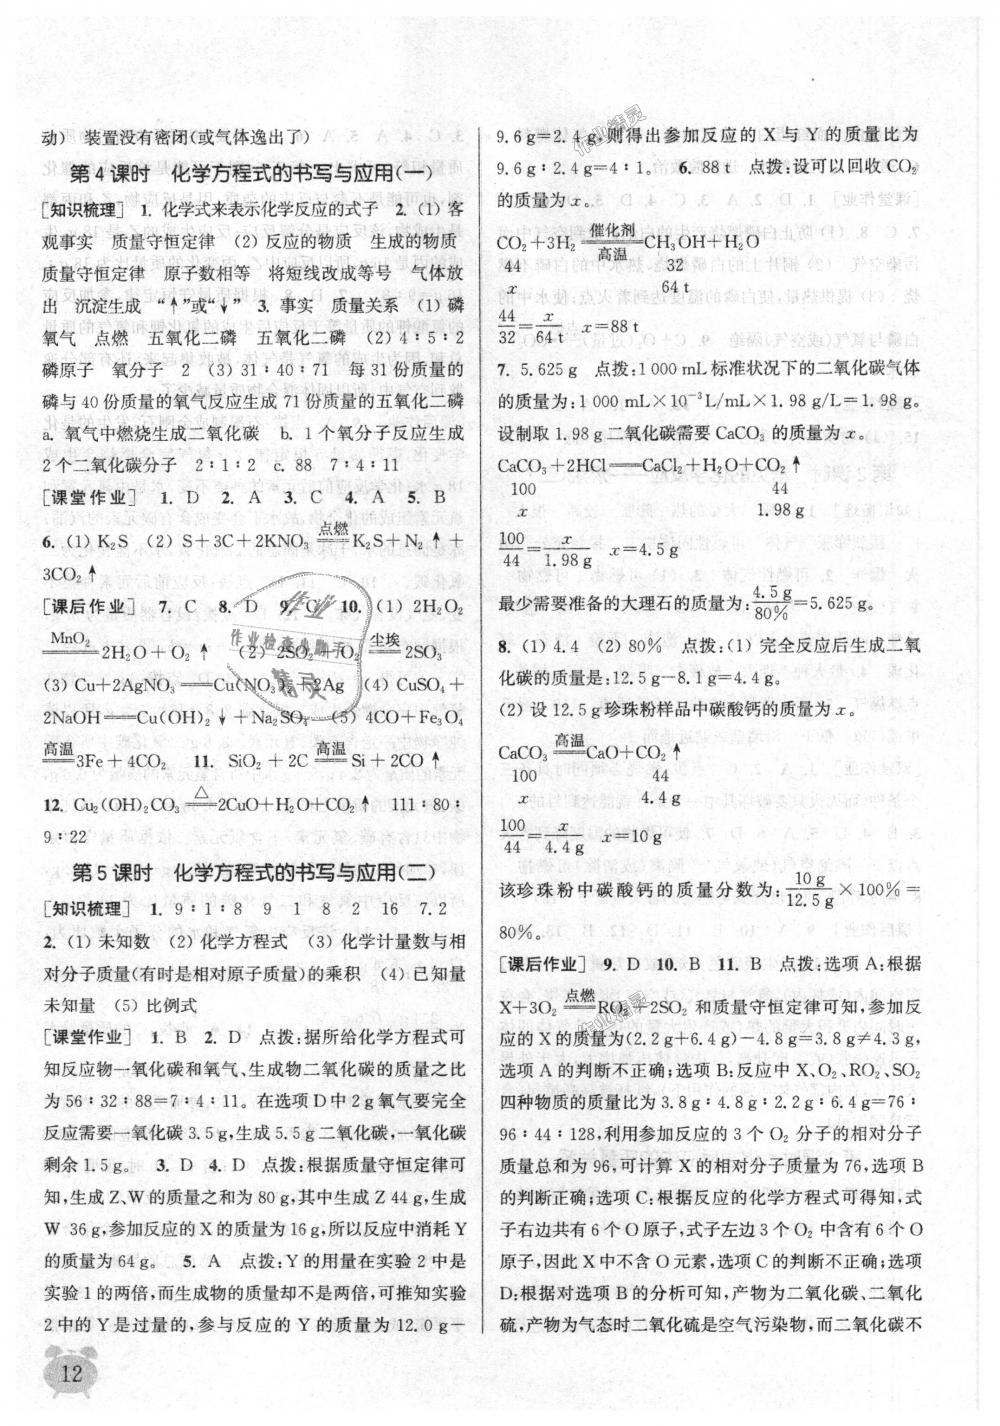 动)　装置没有密闭(或气体逸出了)
第4课时　化学方程式的书写与应用(一)
[知识梳理]　1. 化学式来表示化学反应的式子　2. (1) 客
观事实　质量守恒定律　(2) 反应的物质　生成的物质
质量守恒定律　原子数相等　将短线改成等号　气体放
出　沉淀生成　“↑”或“↓”　3. 事实　质量关系　(1) 磷
氧气　点燃　五氧化二磷　五氧化二磷　(2) 4∶5∶2
磷原子　氧分子　2　(3) 31∶40∶71　每31份质量的
磷与40份质量的氧气反应生成71份质量的五氧化二磷
a. 氧气中燃烧生成二氧化碳　b. 1个氧分子反应生成
2个二氧化碳分子　2∶1∶2　c. 88　7∶4∶11
[课堂作业]　1. D　2. A　3. C　4. A　5. B
6. (1) K₂S　(2) S+3C+2KNO₃ ══点燃══ K₂S+N₂↑+
3CO₂↑
[课后作业]　7. C　8. D　9. C　10. (1) 2H₂O₂
══MnO₂══ 2H₂O+O₂↑　(2) 2SO₂+O₂ ══尘埃══ 2SO₃
(3) Cu+2AgNO₃══Cu(NO₃)₂+2Ag　(4) CuSO₄+
2NaOH══Cu(OH)₂↓+Na₂SO₄　(5) 4CO+Fe₃O₄
══高温══ 3Fe+4CO₂　11. SiO₂+2C ══高温══ Si+2CO↑
12. Cu₂(OH)₂CO₃ ══△══ 2CuO+H₂O+CO₂↑　111∶80∶
9∶22
第5课时　化学方程式的书写与应用(二)
[知识梳理]　1. 9∶1∶8　9　1　8　2　16　7.2
2. (1) 未知数　(2) 化学方程式　(3) 化学计量数与相
对分子质量(有时是相对原子质量)的乘积　(4) 已知量
未知量　(5) 比例式
[课堂作业]　1. B　2. D　点拨：据所给化学方程式可
知反应物一氧化碳和氧气、生成物二氧化碳的质量之比
为56∶32∶88=7∶4∶11。在选项D中2 g氧气要完全
反应需要一氧化碳3.5 g,生成5.5 g二氧化碳,一氧化碳
剩余1.5 g。　3. D　4. D　点拨：根据质量守恒定律可
知,生成Z、W的质量之和为80 g,其中生成Z 44 g,生成
W 36 g,参加反应的X的质量为16 g,所以反应中消耗Y
的质量为64 g。　5. A　点拨：Y的用量在实验2中是
实验1的两倍,而生成物的质量却不是两倍,可推知实验
2中的Y是过量的,参与反应的Y的质量为12.0 g-
9.6 g=2.4 g,则得出参加反应的X与Y的质量比为
9.6 g∶2.4 g=4∶1。　6. 88 t　点拨：设可以回收CO₂
的质量为x。
CO₂+3H₂ ══催化剂/高温══ CH₃OH+H₂O
44　32
x　64 t
44/32=x/64 t　x=88 t
7. 5.625 g　点拨：1 000 mL标准状况下的二氧化碳气体
的质量为：1 000 mL×10⁻³L/mL×1.98 g/L=1.98 g。
设制取1.98 g二氧化碳需要CaCO₃的质量为x。
CaCO₃+2HCl══CaCl₂+H₂O+CO₂↑
100　44
x　1.98 g
100/44=x/1.98 g　x=4.5 g
最少需要准备的大理石的质量为：4.5 g/80%=5.625 g。
8. (1) 4.4　(2) 80%　点拨：(1) 完全反应后生成二氧
化碳的质量是：12.5 g-8.1 g=4.4 g。
(2) 设12.5 g珍珠粉样品中碳酸钙的质量为x。
CaCO₃ ══高温══ CaO+CO₂↑
100　44
x　4.4 g
100/44=x/4.4 g　x=10 g
该珍珠粉中碳酸钙的质量分数为：10 g/12.5 g×100%=
80%。
[课后作业]　9. D　10. B　11. B　点拨：选项A：根据
X+3O₂ ══点燃══ RO₂+2SO₂和质量守恒定律可知,参加反
应的X的质量为(2.2 g+6.4 g)-4.8 g=3.8 g≠4.3 g,
选项A的判断不正确；选项B：反应中X、O₂、RO₂、SO₂
四种物质的质量比为3.8 g∶4.8 g∶2.2 g∶6.4 g=76∶
96∶44∶128,利用参加反应的3个O₂分子的相对分子
质量总和为96,可计算X的相对分子质量为76,选项B
的判断正确；选项C：根据反应的化学方程式可得知,式
子右边共有6个O原子,式子左边3个O₂中含有6个O
原子,因此X中不含O元素,选项C的判断不正确；选项
D：根据对选项B的分析可知,产物为二氧化碳、二氧化
硫,产物为气态时二氧化硫是空气污染物,而二氧化碳不
12
作业
作业检查小助手
精灵
作业精灵
作业精灵